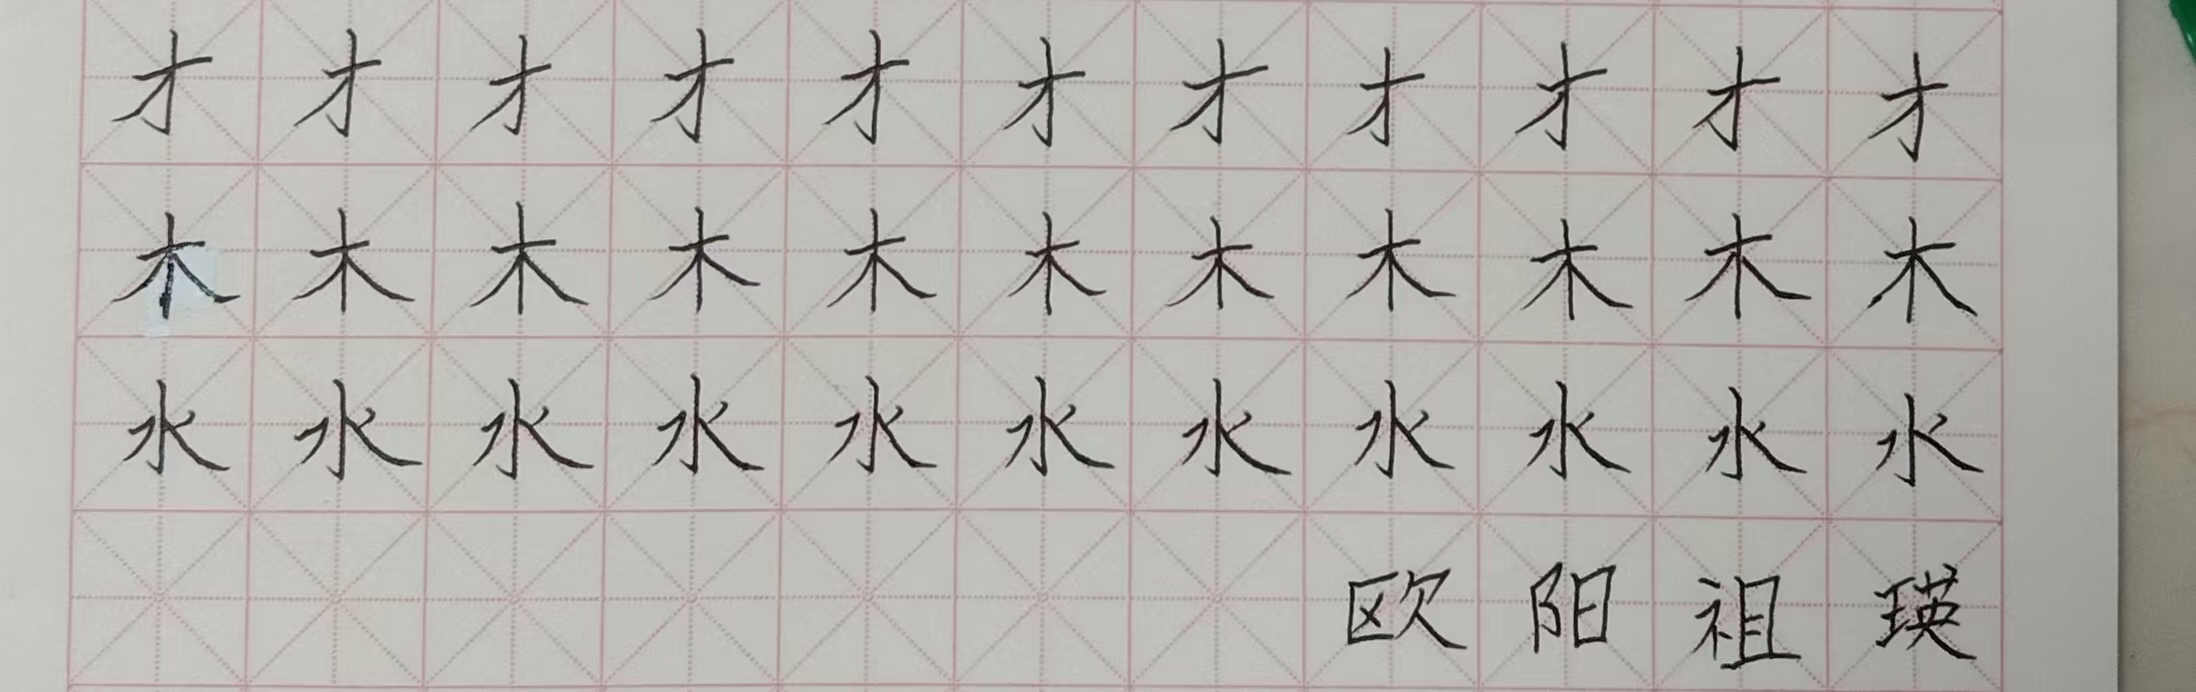 才才才才才才才才才才才
木木木木木木木木木木木
水水水水水水水水水水水
欧阳祖瑛